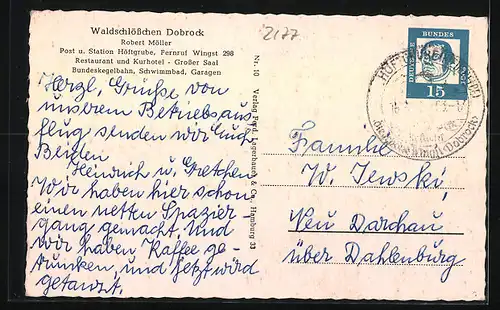 Waldschlößchen Dobrock
Robert Möller
Post u. Station Höftgrube, Fernruf Wingst 298
Restaurant und Kurhotel - Großer Saal
Bundeskegelbahn, Schwimmbad, Garagen
2177
Herzl. Grüße von
unserem Betriebsaus-
flug senden wir Euch
Beiden
Heinrich u. Gretchen
Wir haben hier schon
einen netten Spazier-
gang gemacht. Und
wir haben Kaffee ge-
trunken, und jetzt wird
getanzt.
Nr. 10 Verlag Ferd. Lagerbauer & Co., Hamburg 33
DEUTSCHE BUNDESPOST
15
Familie
W. Jewski,
Neu Darchau
über Dahlenburg